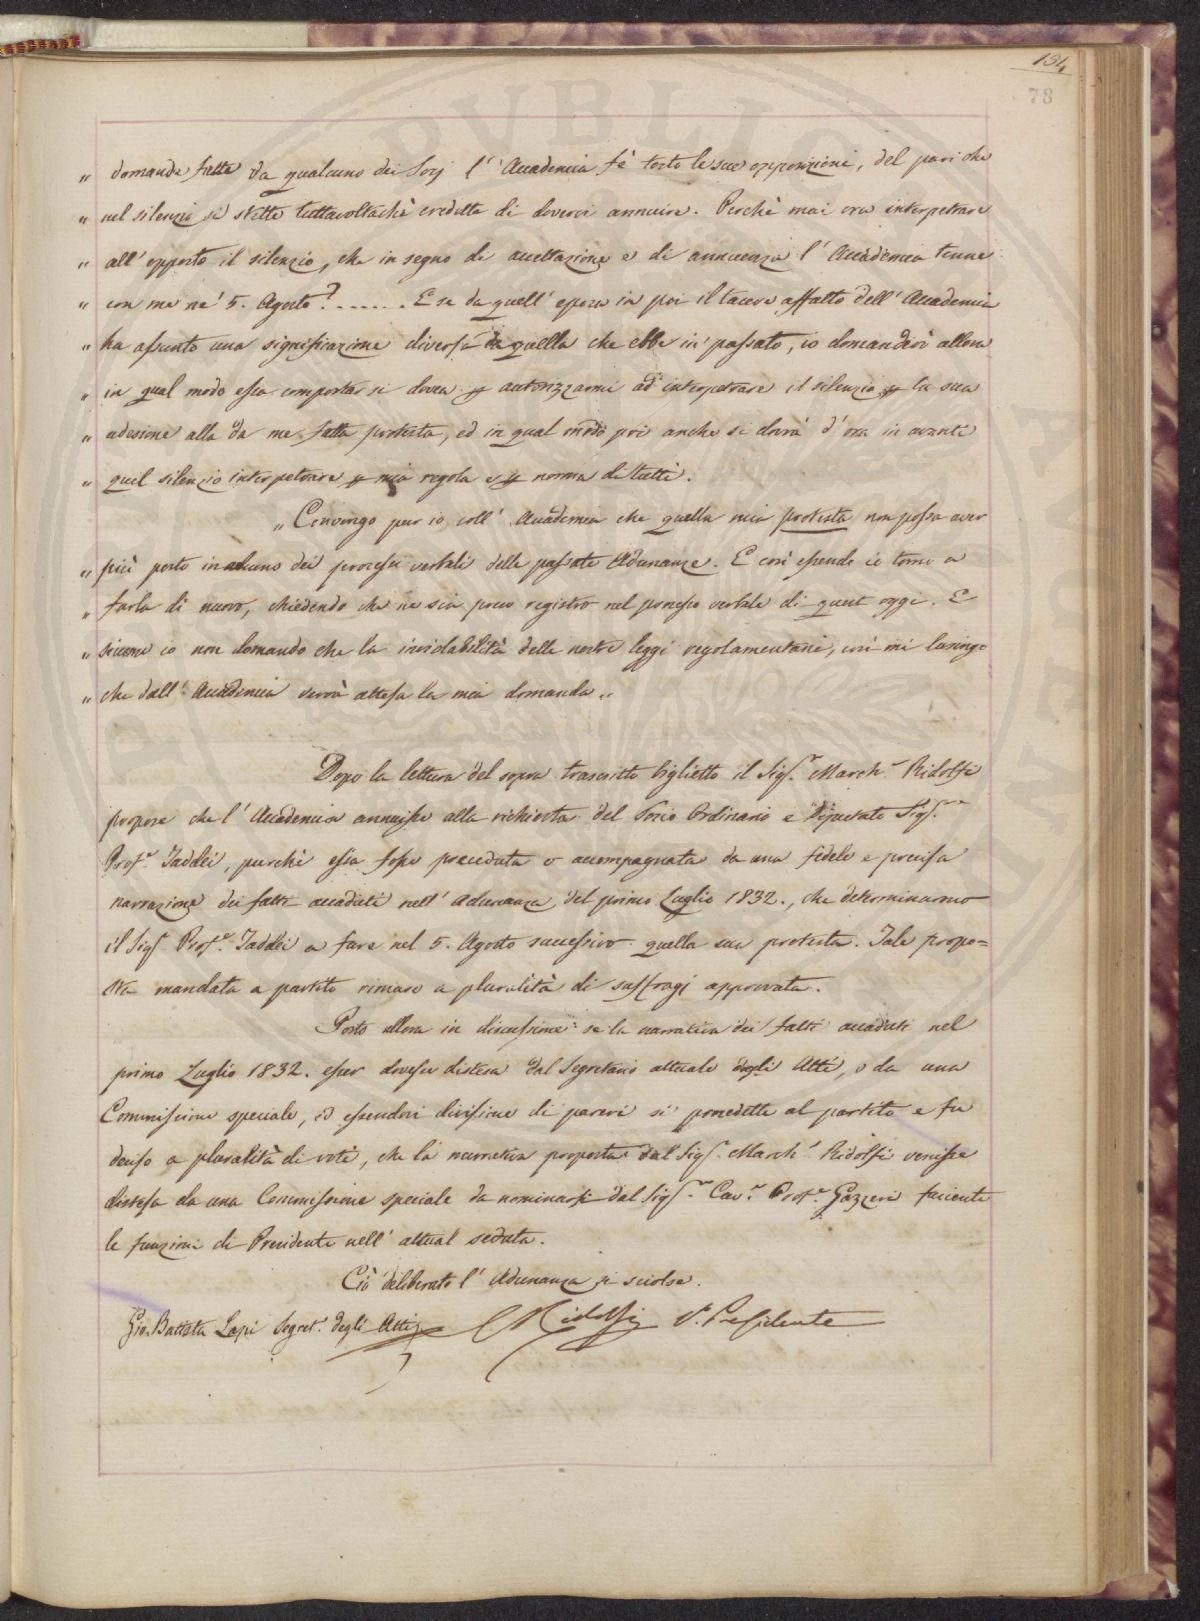 154
78
„ domande fatte da qualcuno dei Socj l'Accademia fè tosto le sue opposizioni, del pari che
„ nel silenzio si stette tuttavoltachè credette di dovervi annuire. Perchè mai ora interpetrare
„ all'opposto il silenzio, che in segno di accettazione e di annuenza l'Accademia tenne
„ con me ne' 5. Agosto? ...... E se da quell'epoca in poi il tacere affatto dell'Accademia
„ ha assunto una significazione diversa da quella che ebbe in passato, io domanderò allora
„ in qual modo essa comportar si dovea p autorizzarmi ad interpetrare il silenzio p la sua
„ adesione alla da me fatta protesta, ed in qual modo poi anche si dovrà d'ora in avanti
„ quel silenzio interpetrare p mia regola e p norma di tutti.
„ Convengo pur io coll'Accademia che quella mia protesta non possa aver
„ più posto in alcuno dei processi verbali delle passate Adunanze. E così essendo io torno a
„ farla di nuovo, chiedendo che ne sia preso registro nel processo verbale di quest'oggi. E
„ siccome io non domando che la inviolabilità delle nostre leggi regolamentarie, così mi lusingo
„ che dall'Accademia verrà attesa la mia domanda „
Dopo la lettura del sopra trascritto biglietto il Sig.r March.e Ridolfi
propose che l'Accademia annuisse alla richiesta del Socio Ordinario e Deputato Sig.re
Prof.e Taddei, purchè essa fosse preceduta o accompagnata da una fedele e precisa
narrazione dei fatti accaduti nell'Adunanza del primo Luglio 1832., che determinarono
il Sig.r Prof.e Taddei a fare nel 5. Agosto successivo quella sua protesta. Tale propo=
sta mandata a partito rimase a pluralità di suffragj approvata.
Posto allora in discussione se la narrativa dei fatti accaduti nel
primo Luglio 1832. esser dovesse distesa dal Segretario attuale degli Atti, o da una
Commissione speciale, ed essendovi divisione di pareri si procedette al partito e fu
deciso a pluralità di voti, che la narrativa proposta dal Sig.r March.e Ridolfi venisse
distesa da una Commissione speciale da nominarsi dal Sig.re Cav.e Prof.e Gazzeri facente
le funzioni di Presidente nell'attual seduta.
Ciò deliberato l'Adunanza si sciolse.
Gio. Battista Lapi Segret.o degli Atti C Ridolfi V. Presidente